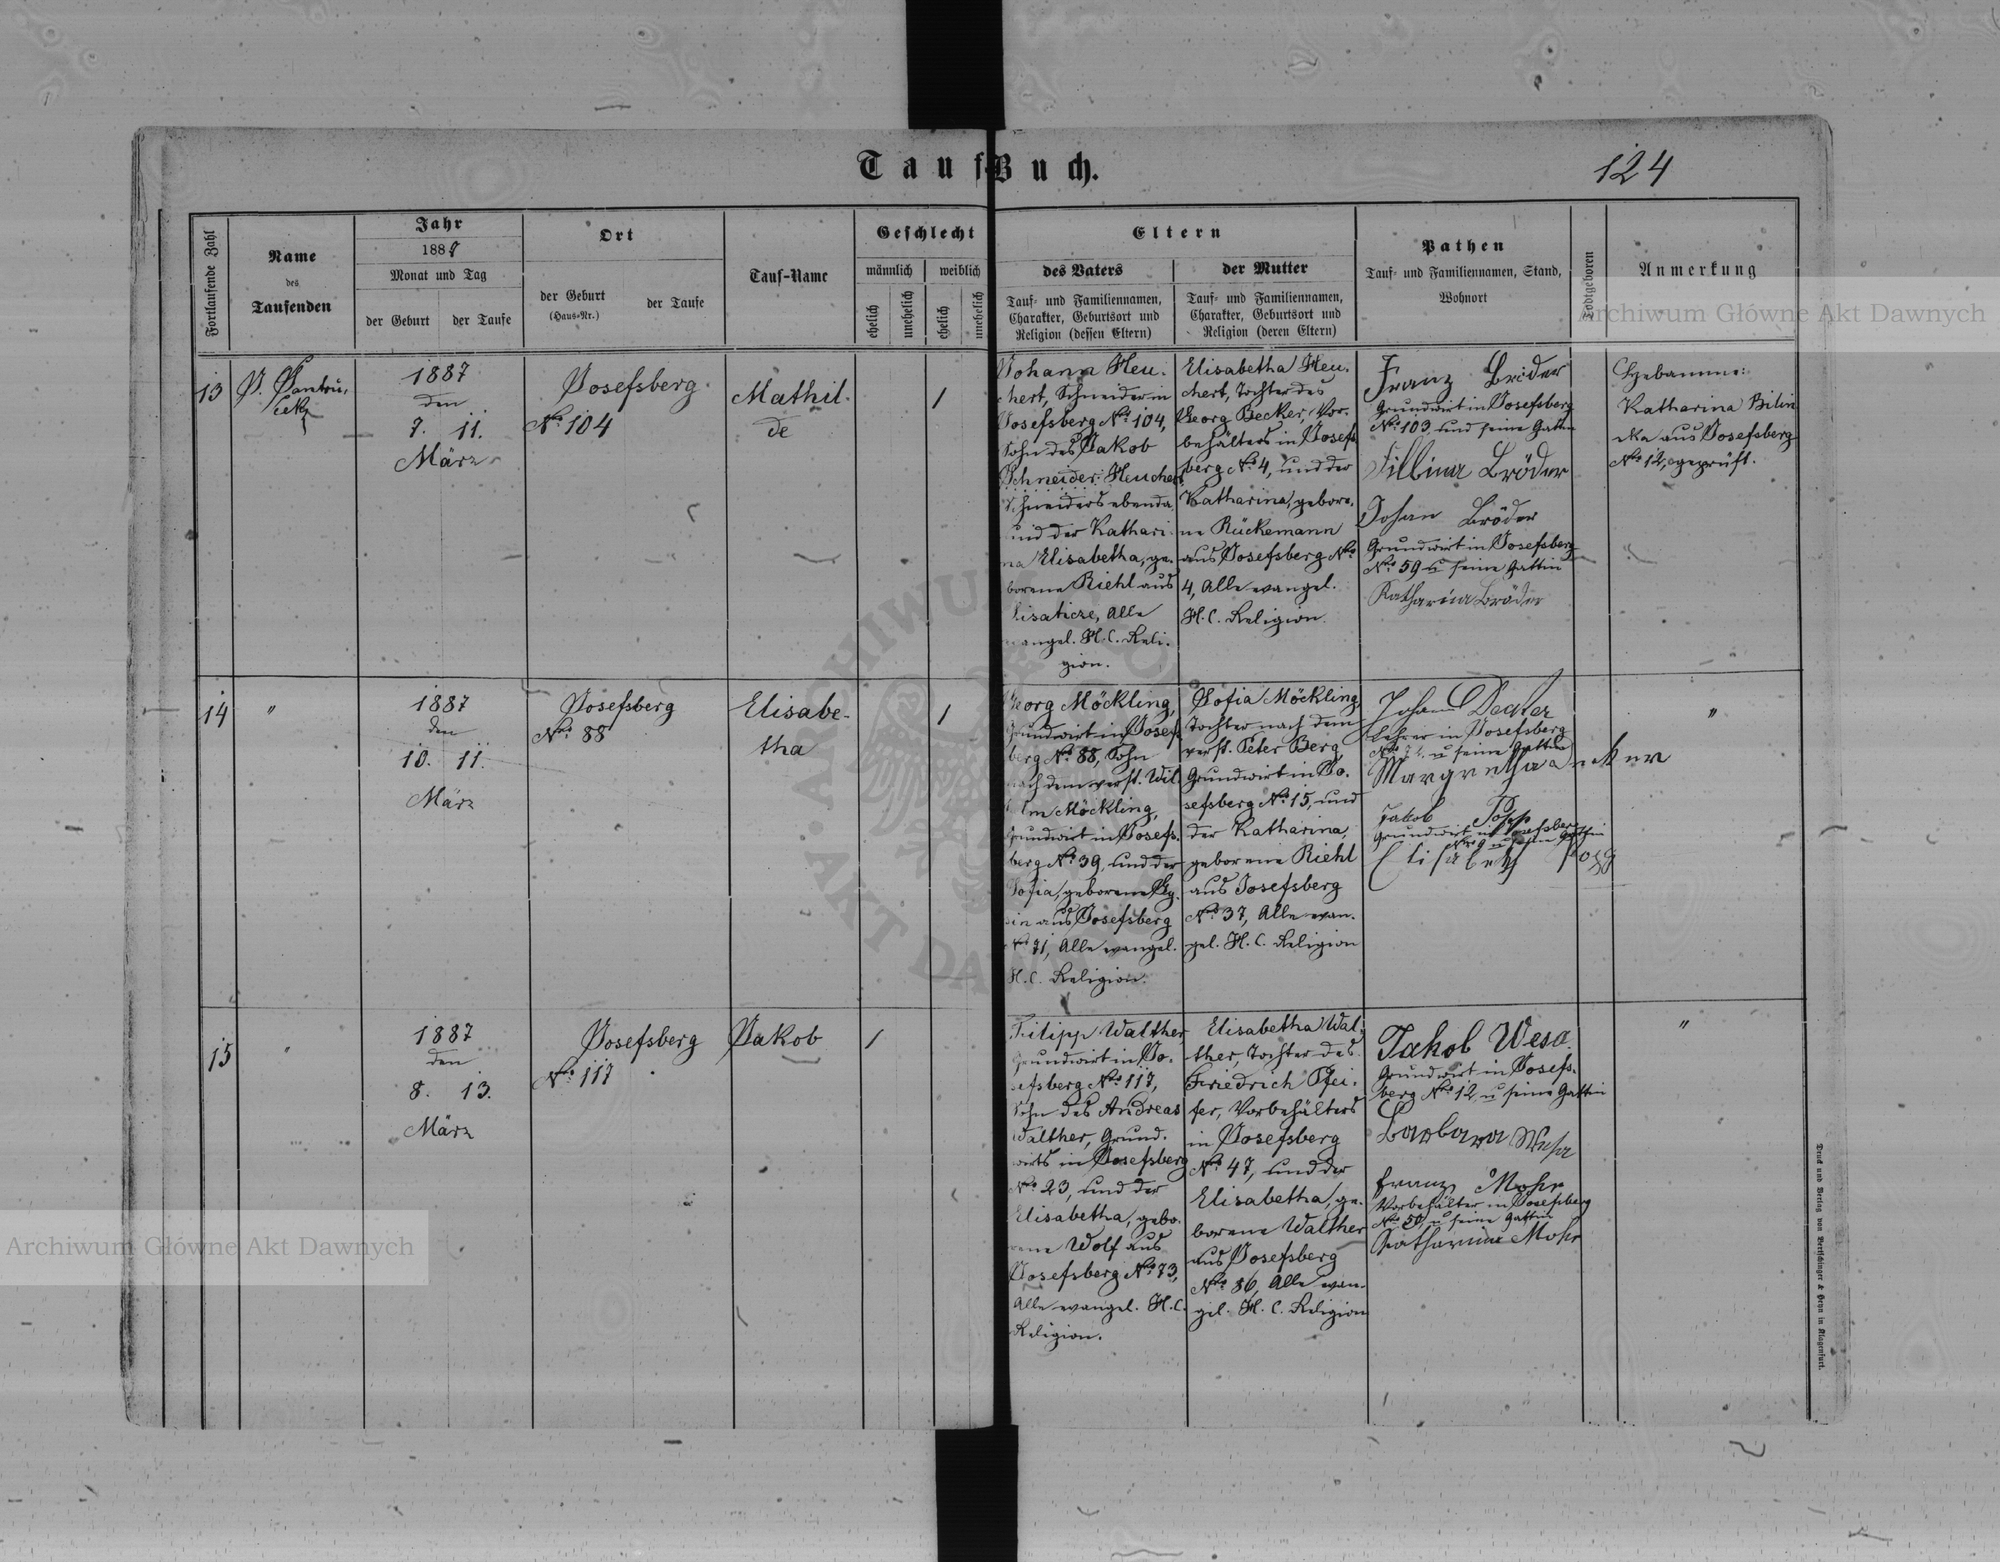 Tauf-Buch.
124
Fortlaufende Zahl
Name
des
Taufenden
Jahr
188
Monat und Tag
der Geburt
der Taufe
Ort
der Geburt
(Haus-Nr.)
der Taufe
Tauf-Name
Geschlecht
männlich
weiblich
ehelich
unehelich
ehelich
unehelich
Eltern
des Vaters
Tauf- und Familiennamen,
Charakter, Geburtsort und
Religion (dessen Eltern)
der Mutter
Tauf- und Familiennamen,
Charakter, Geburtsort und
Religion (deren Eltern)
Pathen
Tauf- und Familiennamen, Stand,
Wohnort
Todtgeboren
Anmerkung
13
1887
den
7. 11.
März
Josefsberg
No 104
Mathil-
de
1
Johann Heu-
chert, Schneider in
Josefsberg No 104,
Sohn des Jakob
Schneider-Heuchert
Schneiders ebenda
und der Kathari-
na Elisabetha, ge-
borene Riehl aus
alle
evangel. H. C. Reli-
gion.
Elisabetha Heu-
chert, Tochter des
Georg Becker, Vor-
behälters in Josefs-
berg No 4, und der
Katharina, gebore-
ne Rückemann
aus Josefsberg No
4, Alle evangel.
H. C. Religion.
Franz Bröder
Grundwirt in Josefsberg
No 103 und seine Gattin
Bröder
Johan Bröder
Grundwirt in Josefsberg
No 59 u seine Gattin
Katharina Bröder
Hebamme:
Katharina Bilin
ska aus Josefsberg
No 12, geprüft.
14
"
1887
den
10. 11.
März
Josefsberg
No 88
Elisabe-
tha
1
Georg Möckling,
Grundwirt in Josefs-
berg No 88, Sohn
nach dem verst. Wil-
helm Möckling,
Grundwirt in Josefs-
berg No 39, und der
Sofia, geborene
aus Josefsberg
No 71, Alle evangel.
H. C. Religion.
Sofia Möckling,
Tochter nach dem
verst. Peter Berg,
Grundwirt in Jo-
sefsberg No 15, und
der Katharina,
geborene Riehl
aus Josefsberg
No 37, Alle evan-
gel. H. C. Religion
Johann
Lehrer in Josefsberg
u seine Gattin
Margretha
Jakob Popp
Grundwirt in Josefsberg
u seine Gattin
Elisabeth Popp
"
15
"
1887
den
8. 13.
März
Josefsberg
No 117
Jakob
1
Filipp Walther
Grundwirt in Jo-
sefsberg No 117,
Sohn des Andreas
Walther, Grund-
wirts in Josefsberg
No 23, und der
Elisabetha, gebo-
rene Wolf aus
Josefsberg No 73,
Alle evangel. H. C.
Religion.
Elisabetha Wal-
ther, Tochter des
Friedrich Pfei-
fer, Vorbehälters
in Josefsberg
No 47, und der
Elisabetha, ge-
borene Walther
aus Josefsberg
No 86, Alle evan-
gel. H. C. Religion
Jakob Wesa
Grundwirt in Josefs-
berg No 12, u seine Gattin
Barbara Wesa
Franz Mohr
Vorbehälter in Josefsberg
No 50, u seine Gattin
Katharina Mohr
"
Druck und Verlag von Bertschinger & Heyn in Klagenfurt.
Archiwum Główne Akt Dawnych
Archiwum Główne Akt Dawnych